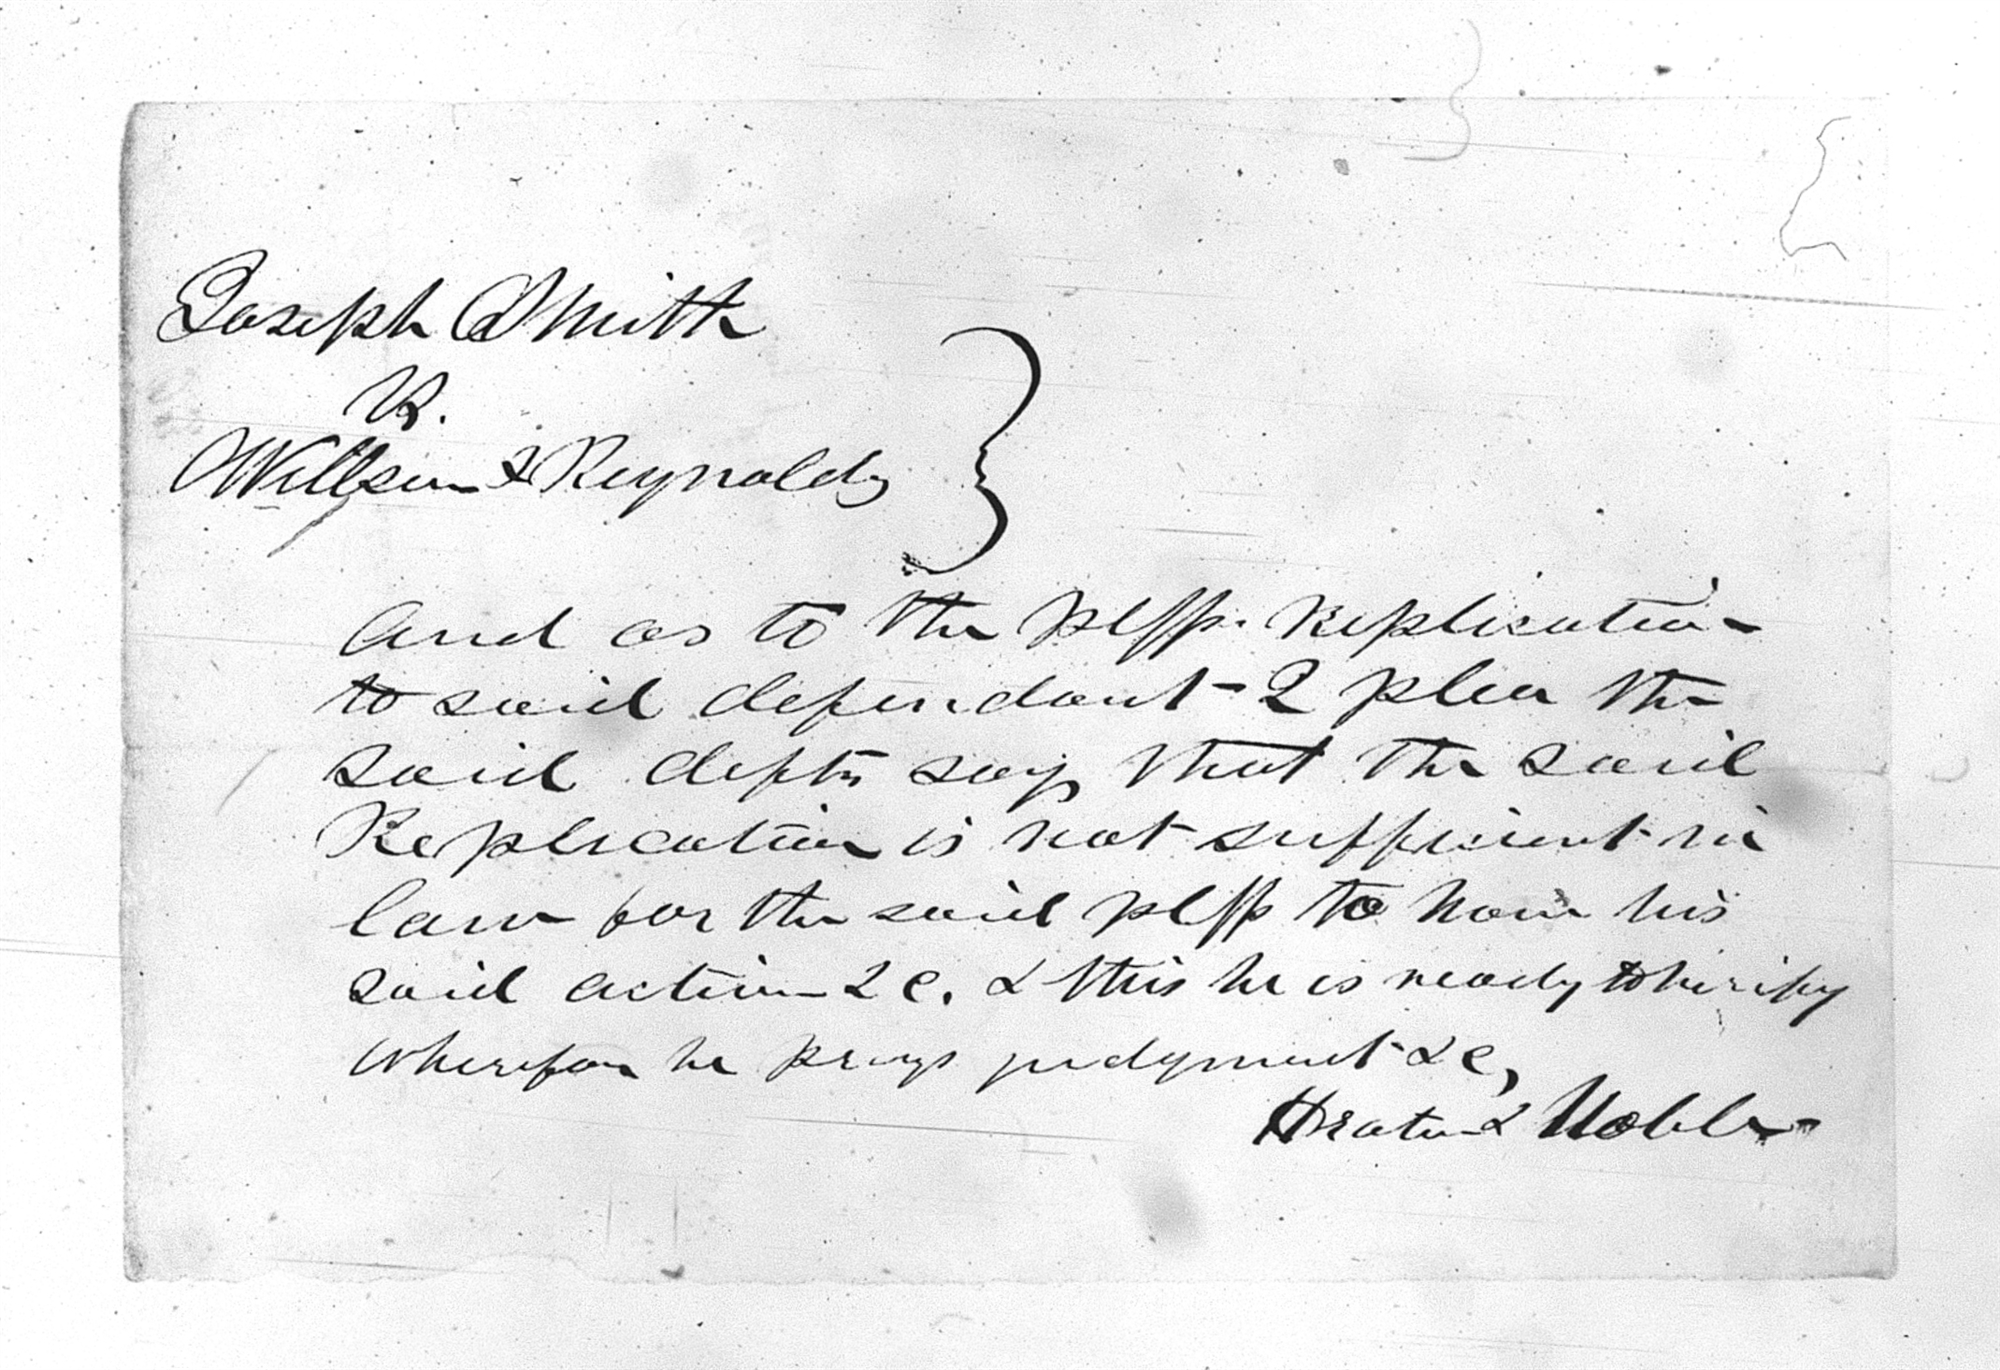 Joseph Smith
vs.
Willson & Reynolds
And as to the plffs. Replication
to said defendant 2 plea the
said defts says that the said
Replication is not sufficient in
law for the said plff to have his
said action &c. & this he is ready to verify
wherefore he prays judgment &c,
& Noble